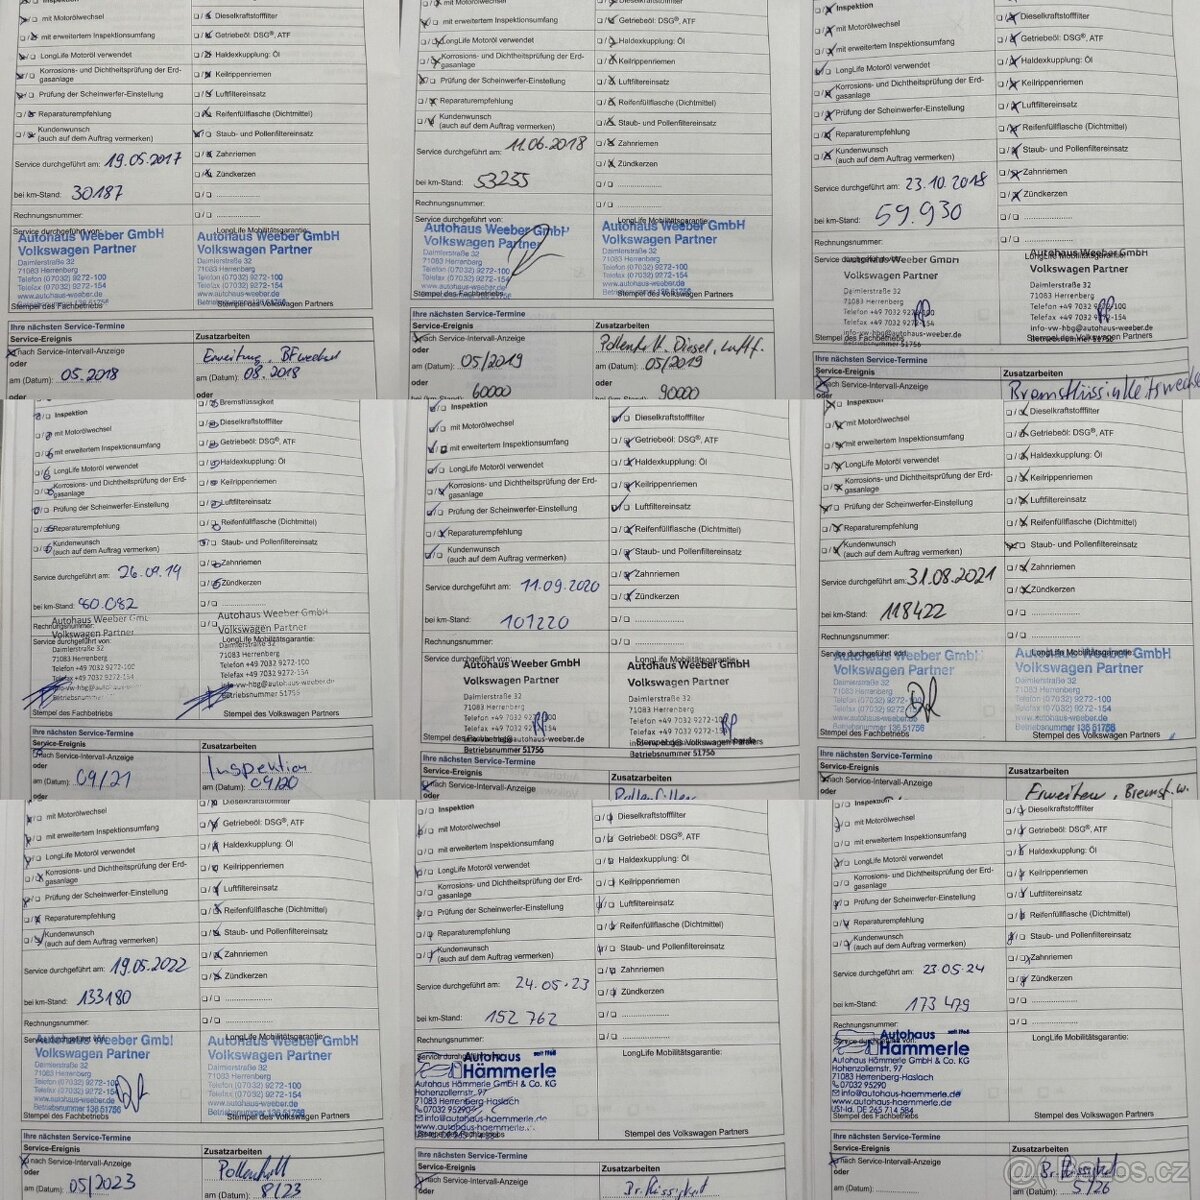 Inspektion
mit Motorölwechsel
mit erweitertem Inspektionsumfang
LongLife Motoröl verwendet
Korrosions- und Dichtheitsprüfung der Erd-
gasanlage
Prüfung der Scheinwerfer-Einstellung
Reparaturempfehlung
Kundenwunsch
(auch auf dem Auftrag vermerken)
Service durchgeführt am: 19.05.2017
bei km-Stand: 30187
Rechnungsnummer:
Service durchgeführt von:
Autohaus Weeber GmbH
Volkswagen Partner
Daimlerstraße 32
71083 Herrenberg
Telefon (07032) 9272-100
Telefax (07032) 9272-154
www.autohaus-weeber.de
Stempel des Fachbetriebs
Dieselkraftstofffilter
Getriebeöl: DSG®, ATF
Haldexkupplung: Öl
Keilrippenriemen
Luftfiltereinsatz
Reifenfüllflasche (Dichtmittel)
Staub- und Pollenfiltereinsatz
Zahnriemen
Zündkerzen
LongLife Mobilitätsgarantie:
Autohaus Weeber GmbH
Volkswagen Partner
Daimlerstraße 32
71083 Herrenberg
Telefon (07032) 9272-100
Telefax (07032) 9272-154
www.autohaus-weeber.de
Stempel des Volkswagen Partners
Ihre nächsten Service-Termine
Service-Ereignis
nach Service-Intervall-Anzeige
oder
am (Datum): 05.2018
oder
Zusatzarbeiten
am (Datum): 08.2018
oder
mit Motorölwechsel
mit erweitertem Inspektionsumfang
LongLife Motoröl verwendet
Korrosions- und Dichtheitsprüfung der Erd-
gasanlage
Prüfung der Scheinwerfer-Einstellung
Reparaturempfehlung
Kundenwunsch
(auch auf dem Auftrag vermerken)
Service durchgeführt am: 11.06.2018
bei km-Stand: 53255
Rechnungsnummer:
Service durchgeführt von:
Autohaus Weeber GmbH
Volkswagen Partner
Daimlerstraße 32
71083 Herrenberg
Stempel des Fachbetriebs
Dieselkraftstofffilter
Getriebeöl: DSG®, ATF
Haldexkupplung: Öl
Keilrippenriemen
Luftfiltereinsatz
Reifenfüllflasche (Dichtmittel)
Staub- und Pollenfiltereinsatz
Zahnriemen
Zündkerzen
LongLife Mobilitätsgarantie:
Autohaus Weeber GmbH
Volkswagen Partner
Daimlerstraße 32
71083 Herrenberg
Telefon (07032) 9272-100
Telefax (07032) 9272-154
www.autohaus-weeber.de
Stempel des Volkswagen Partners
Ihre nächsten Service-Termine
Service-Ereignis
nach Service-Intervall-Anzeige
oder
am (Datum): 05/2019
oder
60000
Zusatzarbeiten
Diesel, Luftf.
am (Datum): 05/2019
oder
90000
Inspektion
mit Motorölwechsel
mit erweitertem Inspektionsumfang
LongLife Motoröl verwendet
Korrosions- und Dichtheitsprüfung der Erd-
gasanlage
Prüfung der Scheinwerfer-Einstellung
Reparaturempfehlung
Kundenwunsch
(auch auf dem Auftrag vermerken)
Service durchgeführt am: 23.10.2018
bei km-Stand: 59.930
Rechnungsnummer:
Autohaus Weeber GmbH
Volkswagen Partner
Daimlerstraße 32
71083 Herrenberg
Telefon +49 7032 9272-100
Telefax +49 7032 9272-154
info-vw-hbg@autohaus-weeber.de
Stempel des Fachbetriebs
Dieselkraftstofffilter
Getriebeöl: DSG®, ATF
Haldexkupplung: Öl
Keilrippenriemen
Luftfiltereinsatz
Reifenfüllflasche (Dichtmittel)
Staub- und Pollenfiltereinsatz
Zahnriemen
Zündkerzen
Autohaus Weeber GmbH
Volkswagen Partner
Daimlerstraße 32
71083 Herrenberg
Telefon +49 7032 9272-100
Telefax +49 7032 9272-154
info-vw-hbg@autohaus-weeber.de
Betriebsnummer 51756
Ihre nächsten Service-Termine
Service-Ereignis
nach Service-Intervall-Anzeige
Zusatzarbeiten
Inspektion
mit Motorölwechsel
mit erweitertem Inspektionsumfang
LongLife Motoröl verwendet
Korrosions- und Dichtheitsprüfung der Erd-
gasanlage
Prüfung der Scheinwerfer-Einstellung
Reparaturempfehlung
Kundenwunsch
(auch auf dem Auftrag vermerken)
Service durchgeführt am: 26.09.19
bei km-Stand: 80.082
Rechnungsnummer:
Service durchgeführt von:
Volkswagen Partner
Daimlerstraße 32
71083 Herrenberg
Telefon +49 7032 9272-100
Telefax +49 7032 9272-154
Stempel des Fachbetriebs
Bremsflüssigkeit
Dieselkraftstofffilter
Getriebeöl: DSG®, ATF
Haldexkupplung: Öl
Keilrippenriemen
Luftfiltereinsatz
Reifenfüllflasche (Dichtmittel)
Staub- und Pollenfiltereinsatz
Zahnriemen
Zündkerzen
Autohaus Weeber GmbH
Volkswagen Partner
LongLife Mobilitätsgarantie:
Daimlerstraße 32
71083 Herrenberg
Telefon +49 7032 9272-100
Telefax +49 7032 9272-154
Betriebsnummer 51756
Stempel des Volkswagen Partners
Ihre nächsten Service-Termine
Service-Ereignis
nach Service-Intervall-Anzeige
oder
am (Datum): 09/21
oder
Zusatzarbeiten
Inspektion
am (Datum): 09/20
Inspektion
mit Motorölwechsel
mit erweitertem Inspektionsumfang
LongLife Motoröl verwendet
Korrosions- und Dichtheitsprüfung der Erd-
gasanlage
Prüfung der Scheinwerfer-Einstellung
Reparaturempfehlung
Kundenwunsch
(auch auf dem Auftrag vermerken)
Service durchgeführt am: 11.09.2020
bei km-Stand: 101220
Rechnungsnummer:
Service durchgeführt von:
Autohaus Weeber GmbH
Volkswagen Partner
Daimlerstraße 32
71083 Herrenberg
Betriebsnummer 51756
Dieselkraftstofffilter
Getriebeöl: DSG®, ATF
Haldexkupplung: Öl
Keilrippenriemen
Luftfiltereinsatz
Reifenfüllflasche (Dichtmittel)
Staub- und Pollenfiltereinsatz
Zahnriemen
Zündkerzen
LongLife Mobilitätsgarantie:
Autohaus Weeber GmbH
Volkswagen Partner
Daimlerstraße 32
71083 Herrenberg
Telefon +49 7032 9272-100
Telefax +49 7032 9272-154
Betriebsnummer 51756
Ihre nächsten Service-Termine
Service-Ereignis
nach Service-Intervall-Anzeige
oder
Zusatzarbeiten
Pollenfilter
Inspektion
mit Motorölwechsel
mit erweitertem Inspektionsumfang
LongLife Motoröl verwendet
Korrosions- und Dichtheitsprüfung der Erd-
gasanlage
Prüfung der Scheinwerfer-Einstellung
Reparaturempfehlung
Kundenwunsch
(auch auf dem Auftrag vermerken)
Service durchgeführt am: 31.08.2021
bei km-Stand: 118422
Rechnungsnummer:
Service durchgeführt von:
Autohaus Weeber GmbH
Volkswagen Partner
Daimlerstraße 32
71083 Herrenberg
Telefon (07032) 9272-100
Telefax (07032) 9272-154
Stempel des Fachbetriebs
Dieselkraftstofffilter
Getriebeöl: DSG®, ATF
Haldexkupplung: Öl
Keilrippenriemen
Luftfiltereinsatz
Reifenfüllflasche (Dichtmittel)
Staub- und Pollenfiltereinsatz
Zahnriemen
Zündkerzen
LongLife Mobilitätsgarantie:
Autohaus Weeber GmbH
Volkswagen Partner
Daimlerstraße 32
71083 Herrenberg
Telefon (07032) 9272-100
Telefax (07032) 9272-154
Betriebsnummer 136 51756
Stempel des Volkswagen Partners
Ihre nächsten Service-Termine
Service-Ereignis
nach Service-Intervall-Anzeige
oder
Zusatzarbeiten
mit Motorölwechsel
mit erweitertem Inspektionsumfang
LongLife Motoröl verwendet
Korrosions- und Dichtheitsprüfung der Erd-
gasanlage
Prüfung der Scheinwerfer-Einstellung
Reparaturempfehlung
Kundenwunsch
(auch auf dem Auftrag vermerken)
Service durchgeführt am: 19.05.2022
bei km-Stand: 133180
Rechnungsnummer:
Autohaus Weeber GmbH
Volkswagen Partner
Daimlerstraße 32
71083 Herrenberg
Telefon (07032) 9272-100
Telefax (07032) 9272-154
Betriebsnummer 136 51756
Stempel des Fachbetriebs
Dieselkraftstofffilter
Getriebeöl: DSG®, ATF
Haldexkupplung: Öl
Keilrippenriemen
Luftfiltereinsatz
Reifenfüllflasche (Dichtmittel)
Staub- und Pollenfiltereinsatz
Zahnriemen
Zündkerzen
LongLife Mobilitätsgarantie:
Autohaus Weeber GmbH
Volkswagen Partner
Daimlerstraße 32
71083 Herrenberg
Telefon (07032) 9272-100
Telefax (07032) 9272-154
Betriebsnummer 136 51756
Stempel des Volkswagen Partners
Ihre nächsten Service-Termine
Service-Ereignis
nach Service-Intervall-Anzeige
oder
am (Datum): 05/2023
Zusatzarbeiten
am (Datum): 8/23
Inspektion
mit Motorölwechsel
mit erweitertem Inspektionsumfang
LongLife Motoröl verwendet
Korrosions- und Dichtheitsprüfung der Erd-
gasanlage
Prüfung der Scheinwerfer-Einstellung
Reparaturempfehlung
Kundenwunsch
(auch auf dem Auftrag vermerken)
Service durchgeführt am: 24.05.23
bei km-Stand: 152 762
Rechnungsnummer:
Autohaus seit 1968
Hämmerle
Autohaus Hämmerle GmbH & Co. KG
Hohenzollernstr. 97
71083 Herrenberg-Haslach
07032 95290
info@autohaus-haemmerle.de
www.autohaus-haemmerle.de
Dieselkraftstofffilter
Getriebeöl: DSG®, ATF
Haldexkupplung: Öl
Keilrippenriemen
Luftfiltereinsatz
Reifenfüllflasche (Dichtmittel)
Staub- und Pollenfiltereinsatz
Zahnriemen
Zündkerzen
LongLife Mobilitätsgarantie:
Stempel des Volkswagen Partners
Ihre nächsten Service-Termine
Service-Ereignis
nach Service-Intervall-Anzeige
oder
Zusatzarbeiten
Inspektion
mit Motorölwechsel
mit erweitertem Inspektionsumfang
LongLife Motoröl verwendet
Korrosions- und Dichtheitsprüfung der Erd-
gasanlage
Prüfung der Scheinwerfer-Einstellung
Reparaturempfehlung
Kundenwunsch
(auch auf dem Auftrag vermerken)
Service durchgeführt am: 23.05.24
bei km-Stand: 173 479
Rechnungsnummer:
Autohaus seit 1968
Hämmerle
Autohaus Hämmerle GmbH & Co. KG
Hohenzollernstr. 97
71083 Herrenberg-Haslach
07032 95290
info@autohaus-haemmerle.de
www.autohaus-haemmerle.de
USt-Id. DE 245 714 584
Stempel des Fachbetriebs
Dieselkraftstofffilter
Getriebeöl: DSG®, ATF
Haldexkupplung: Öl
Keilrippenriemen
Luftfiltereinsatz
Reifenfüllflasche (Dichtmittel)
Staub- und Pollenfiltereinsatz
Zahnriemen
Zündkerzen
LongLife Mobilitätsgarantie:
Stempel des Volkswagen Partners
Ihre nächsten Service-Termine
Service-Ereignis
nach Service-Intervall-Anzeige
oder
am (Datum):
Zusatzarbeiten
am (Datum): 5/26